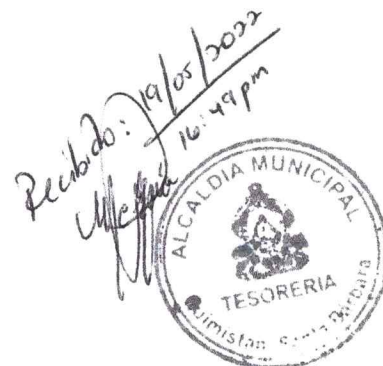 Recibido: 19/05/2022
16:49 pm
ALCALDIA MUNICIPAL
TESORERIA
Quimistan, Santa Barbara